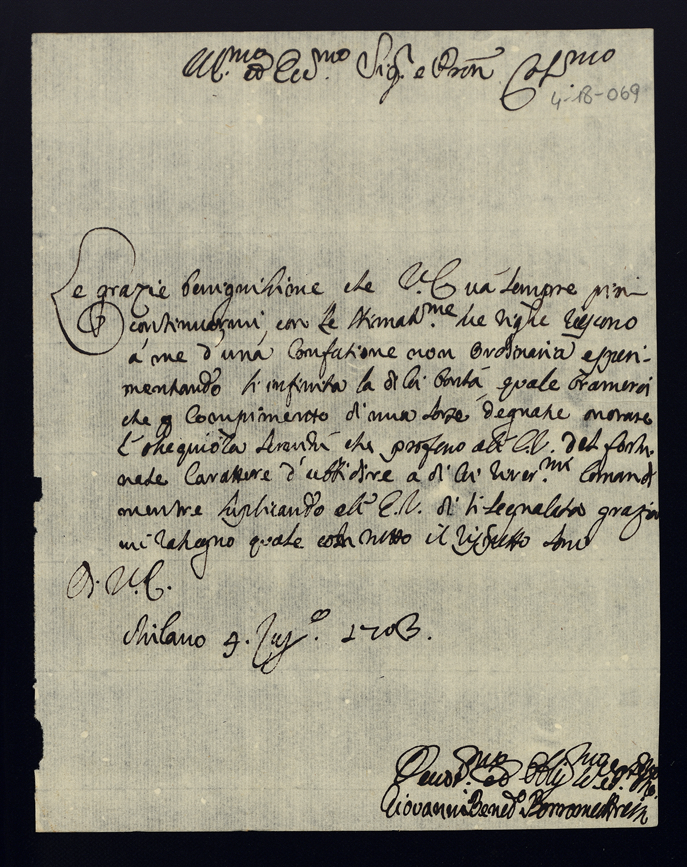 Ill.mo ed Ecc.mo Sig.r e Pron Col.mo
4-18-069
Le grazie benignissime che V.E. và sempre più
continuarmi con le stimatis.me sue righe riescono
à me d'una confusione non ordinaria esperi-
mentando sì infinita la di lei bontà quale bramerei
che p compimento di mia sorte degnasse onorare
l'ossequiosa servitù che professo all'E.V. del fortu-
nato carattere d'ubbidire a di lei river.mi comandi
mentre suplicando all'E.V. di sì segnalata grazia
mi rassegno quale con tutto il rispetto sono
D. V.E.
Milano 4. Lug.o 1703.
Deuot.mo ed Obblig.mo
Giovanni Bened.o Borromeo Aresi